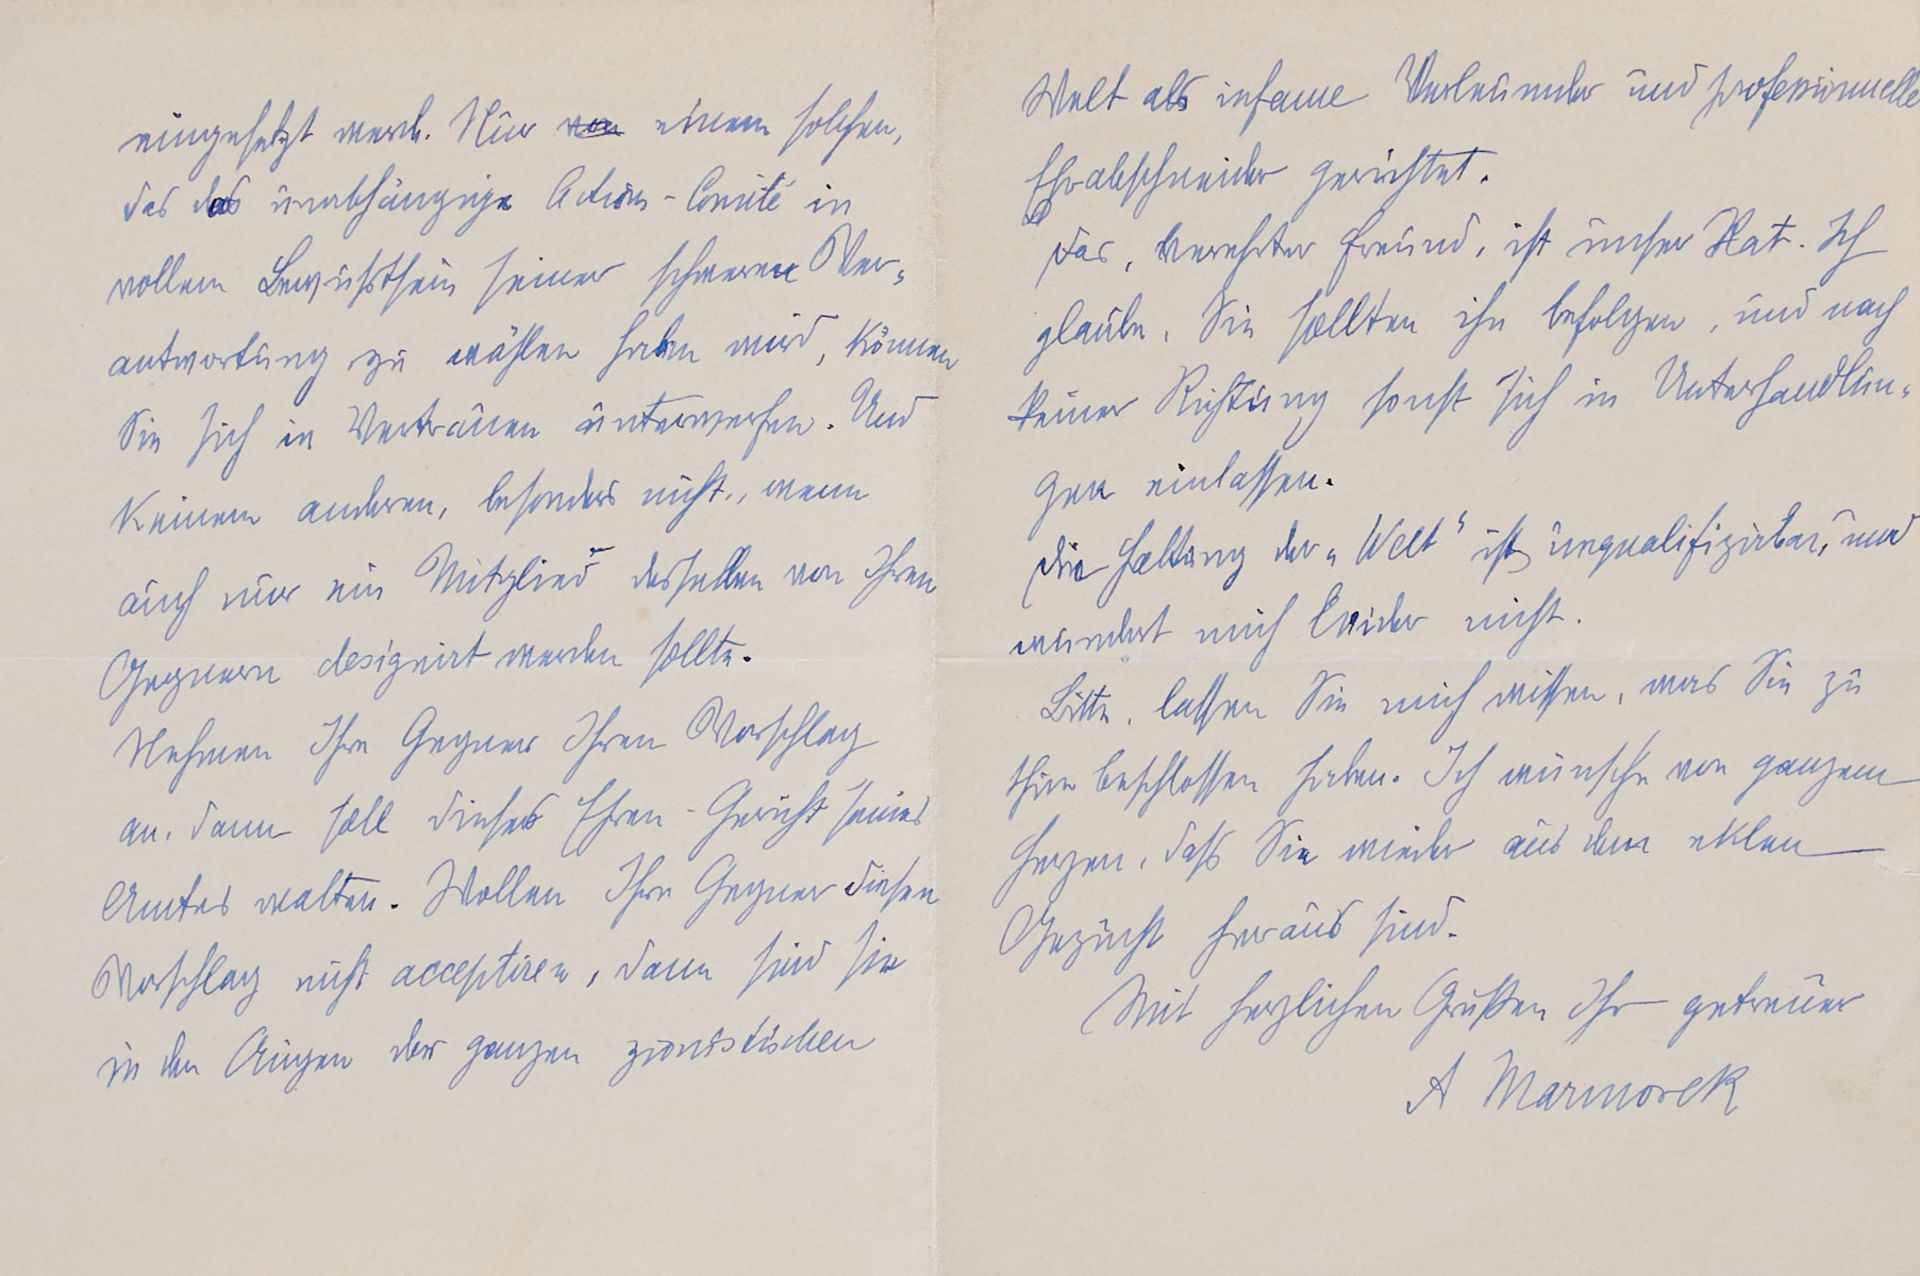 eingesetzt werd. Nur von einem solchen,
das das unabhängige Actions-Comité in
vollem Bewußtsein seiner schweren Ver-
antwortung zu wählen haben wird, können
Sie sich in Vertrauen unterwerfen. Und
keinem anderen, besonders nicht, wenn
auch nur ein Mitglied desselben von Ihren
Gegnern designirt werden sollte.
Nehmen Ihre Gegner Ihren Vorschlag
an, dann soll dieses Ehren-Gericht seines
Amtes walten. Wollen Ihre Gegner diesen
Vorschlag nicht acceptiren, dann sind sie
in den Augen der ganzen zionistischen
Welt als infame Verleumder und professionnelle
Ehrabschneider gerichtet.
Das, verehrter Freund, ist unser Rat. Ich
glaube, Sie sollten ihn befolgen, und nach
keiner Richtung sonst sich in Unterhandlun-
gen einlassen.
Die Haltung der „Welt“ ist unqualifizirbar, und
wundert mich leider nicht.
Bitte, lassen Sie mich wissen, was Sie zu
thun beschlossen haben. Ich wünsche von ganzem
Herzen, daß Sie wieder aus dem eklen
Gezücht heraus sind.
Mit herzlichen Grüßen Ihr getreuer
A Marmorek